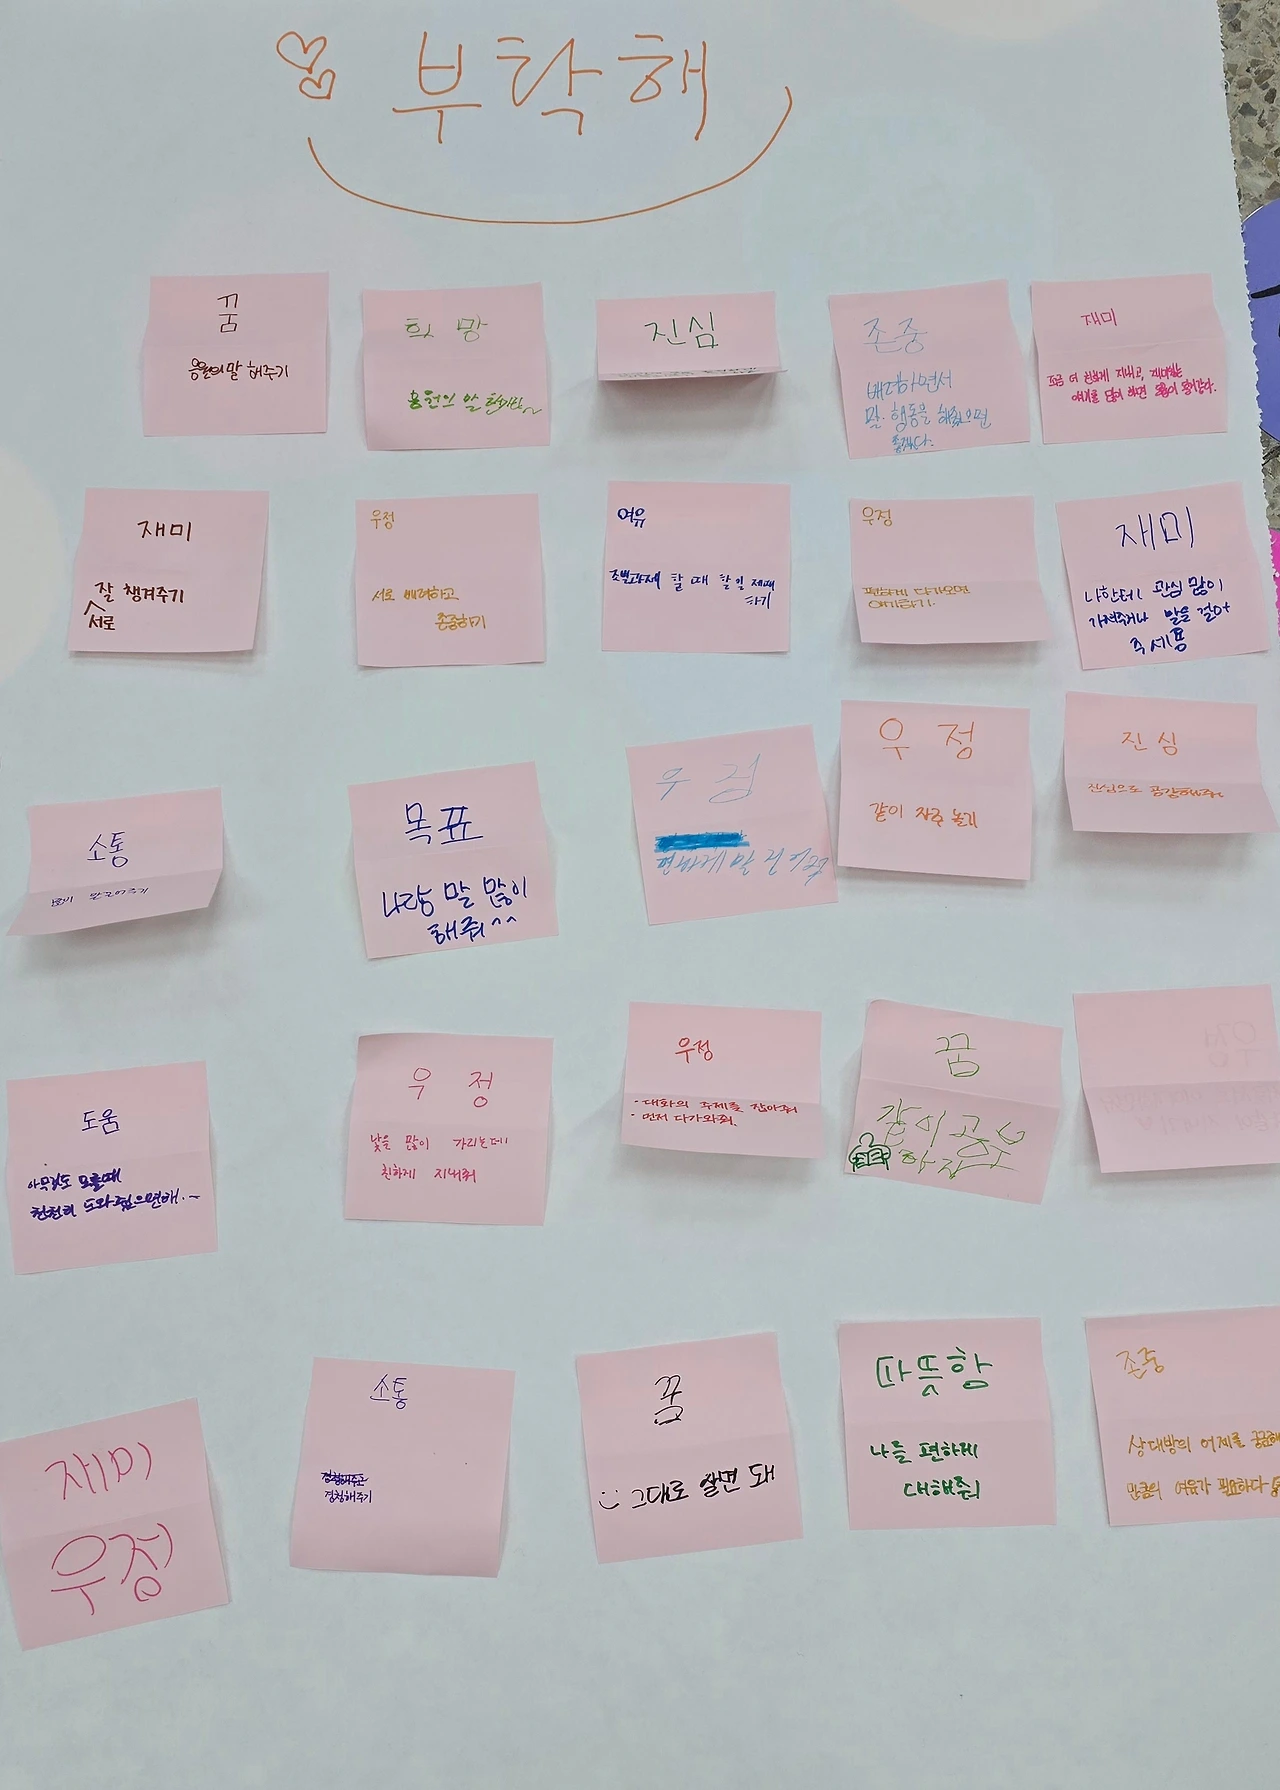 부탁해
꿈
응원의 말 해주기
희망
응원의 말 한마디~
진심
존중
배려하면서
말·행동을 해줬으면
좋겠다.
재미
조금 더 친하게 지내고, 재미있는
얘기를 많이 하면 좋을거같다.
재미
잘 챙겨주기
서로
우정
서로 배려하고
존중하기
여유
조별과제 할 때 할일 제때
하기
우정
편하게 다가오면
얘기하기.
재미
나한테 관심 많이
가져주거나 말을 걸어
주세용
소통
말걸어주기
목표
나랑 말 많이
해줘^^
우정
편하게 말 걸어줘
우정
같이 자주 놀기
진심
진심으로 공감해줘.
도움
아무것도 모를때
천천히 도와줬으면해.~
우정
낯을 많이 가리는데
친하게 지내줘
우정
· 대화의 주제를 잡아줘
· 먼저 다가와줘.
꿈
같이 공부
하자
우정
재미
우정
소통
경청해주기
꿈
그대로 살면 돼
따뜻함
나를 편하게
대해줘
존중
상대방의 어제를 궁금해
만큼의 여유가 필요하다